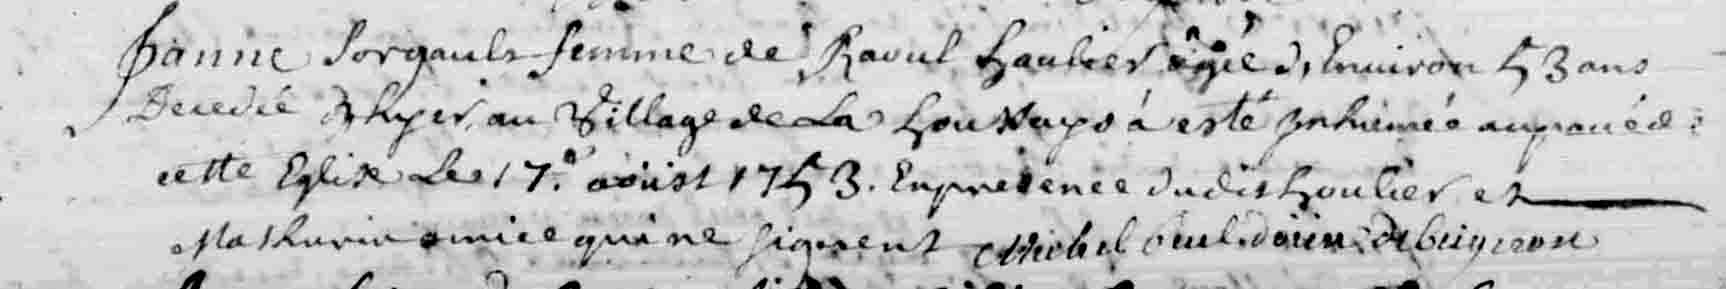 Janne Sorgault femme de Raoul houlier âgée d'Environ 53 ans
Decedée d'hyer au Village de La hou a esté Inhumée au pavé de
cette Eglise Le 17.e aoüst 1753. En presence dudit houlier et
Mathurin amice qui ne signent Michel de